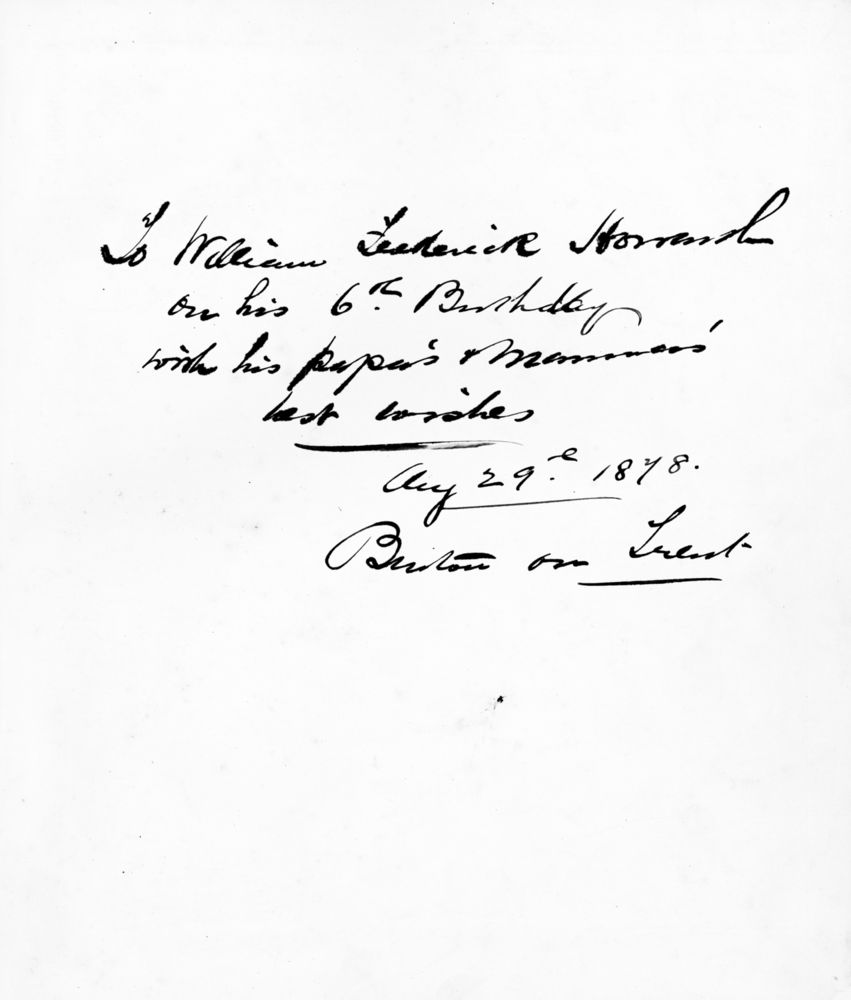 To William Frederick Howarth
on his 6th Birthday
with his papa's & Mammas'
best wishes
Aug 29th 1878.
Burton on Trent